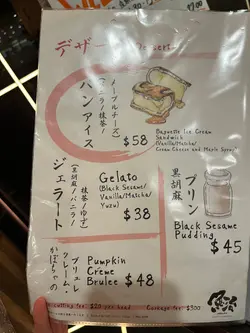 デザート Dessert
メープルチーズ)
(バニラ/抹茶/
パンアイス
$58
Baguette Ice Cream
Sandwich
(Vanilla/Matcha/
Cream Cheese and Maple Syrup)
(黒胡麻/バニラ/
抹茶/ゆず)
ジェラート
Gelato
(Black Sesame/
Vanilla/Matcha/
Yuzu)
$38
黒胡麻
プリン
Black Sesame
Pudding
$45
かぼちゃの
クレーム・
ブリュレ
Pumpkin
Crème
Brulee $48
cutting fee $20 per head
Corkage fee $300